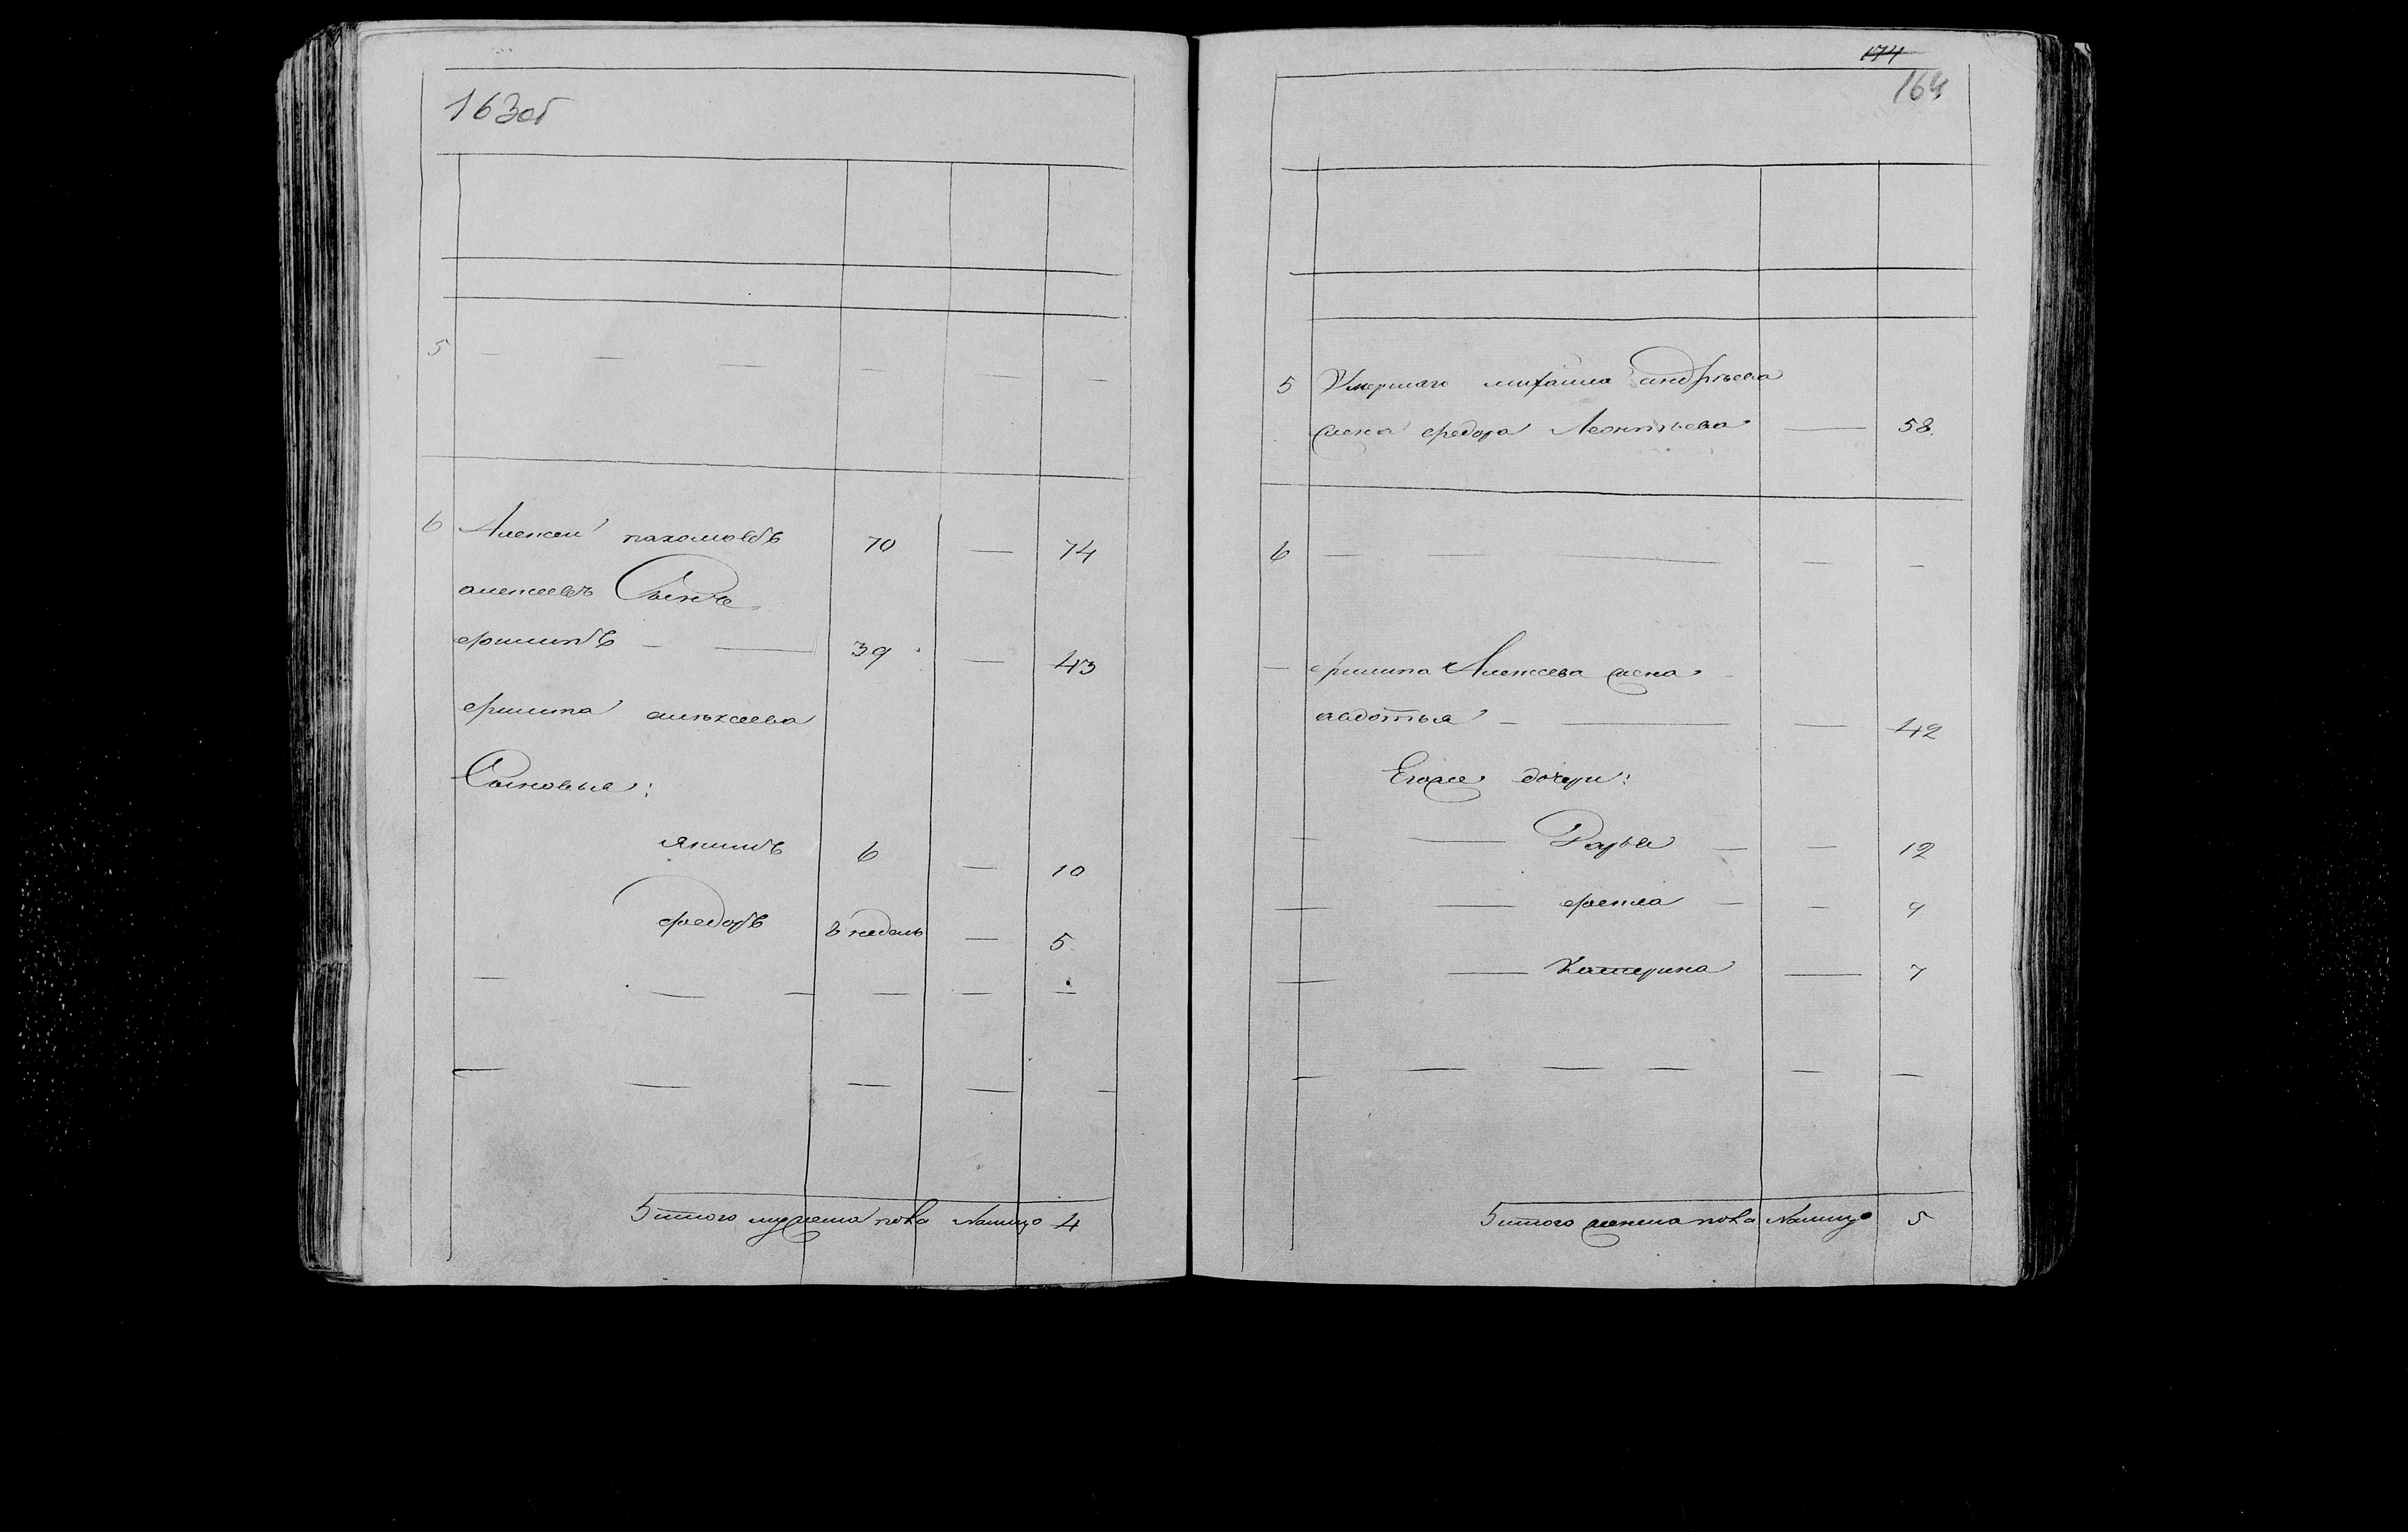 163об
5
6 Алексей пахомовъ 70 — 74
алексеевъ Сынъ
филипъ — — 39 — 43
филипа алексеева
Сыновья:
якимъ 6 — 10
федоръ 8 недель — 5
Итого мужеска пола Налицо 4
174
164
5 Умершаго михаила андреева
жена федора Леонтьева — 58
6
филипа Алексеева жена
авдотья — — 42
Егоже дочери:
Дарья — — 12
фекла — — 9
Катерина — 7
Итого женска пола Налицо 5